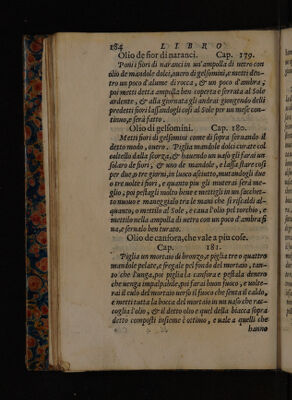 184 LIBRO
Olio de fior di naranci. Cap. 179.
Poni i fiori di naranci in un'ampolla di uetro con
olio de mandole dolci, ouero di gelsomini, e metti den-
tro un poco d'alume di rocca, & un poco d'ambra;
poi metti detta ampolla ben coperta e serrata al Sole
ardente, & alla giornata gli andrai giongendo delli
predetti fiori lassandogli cosi al Sole per un mese con-
tinuo, e serà fatto.
Olio di gelsomini. Cap. 180.
Metti fiori di gelsomini come di sopra seruando il
detto modo, ouero. Piglia mandole dolci curate col
coltello dalla scorza, & hauendo un uaso gli farai un
solaro de fiori, & uno de mandole, e lassa stare cosi
per due, o tre giorni, in luoco asciutto, mutandogli due
o tre uolte i fiori, e quanto piu gli muterai serà me-
glio, poi pestagli molto bene e mettigli in un sacchet-
to nuouo e maneggialo tra le mani che si riscaldi al-
quanto, o mettilo al Sole, e caua l'olio pel torchio, e
mettilo nella ampolla di uetro con un poco d'ambra fi
na, e serralo ben turato.
Olio de canfora, che vale a piu cose.
Cap. 181.
Piglia un mortaio di bronzo, e piglia tre o quattro
mandole pelate, e fregale pel fondo del mortaio, tan-
to che l'unga, poi piglia la canfora e pestala denero
che uenga impalpabile, poi farai buon fuoco, e uolte-
rai il culo del mortaio uerso il fuoco che senta il caldo,
e metti tutta la bocca del mortaio in un uaso che rac-
coglia l'olio, & il detto olio e quel della biacca sopra
detto composti insieme è ottimo, e uale a quelli che
hanno